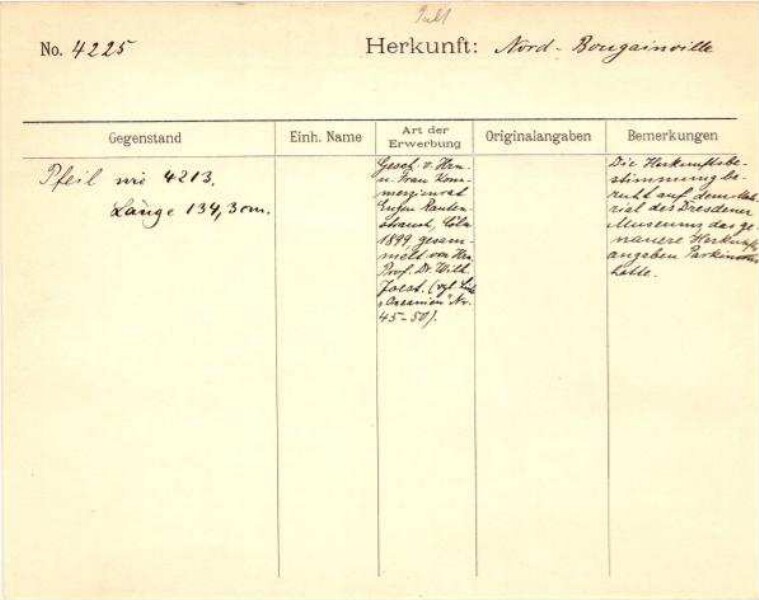 No. 4225
Herkunft: Nord-Bougainville
Gegenstand
Einh. Name
Art der
Erwerbung
Originalangaben
Bemerkungen
Pfeil wie 4213.
Länge 134,3 cm.
Gesch. v. Hrn.
u. Frau Kom-
merzienrat
Eugen Rauten-
strauch, Cöln
1899, gesam-
melt von Hrn.
Prof. Dr. Wilh.
Joest. (vgl.
"Ozeanien" Nr.
45-50).
Die Herkunftsbe-
stimmung be-
ruht auf dem Mate-
rial des Dresdener
Museums, das ge-
nauere Herkunfts-
angaben Parkinsons
hatte.